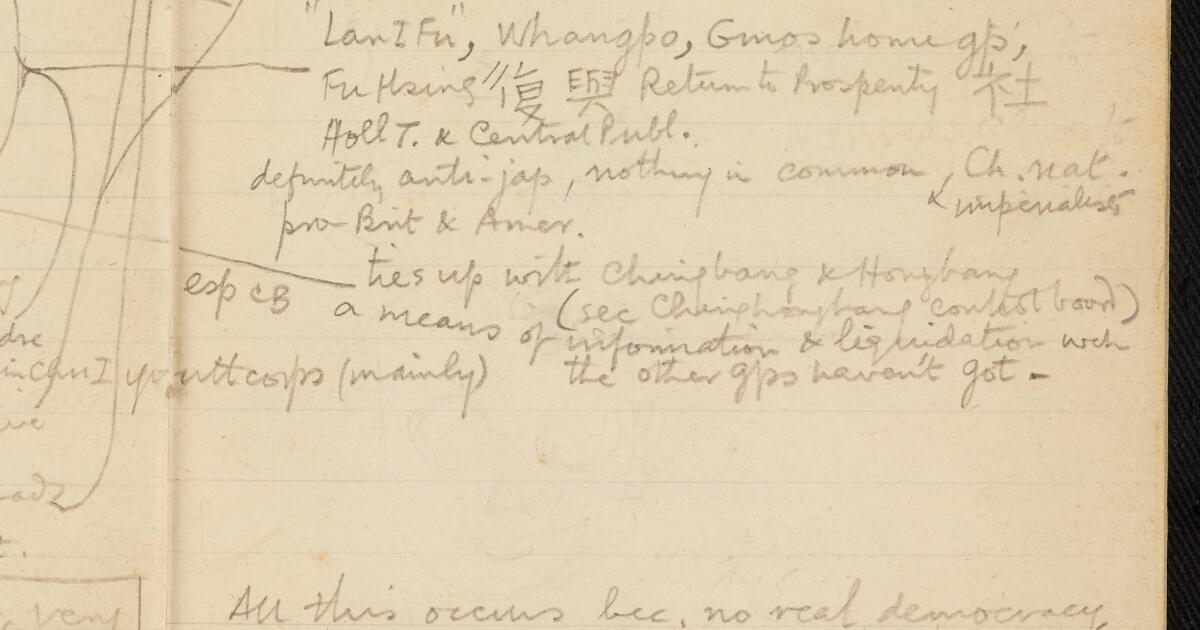 "Lan I Fu", Whangpo, Gmos home gp,
Fu Hsing" 復興 Return to Prosperity 社
Holl T. & Central Publ.
definitely anti-jap, nothing in common, Ch. nat.
& imperialist
pro-Brit & Amer.
ties up with Chingbang & Hongbang
esp CB
a means of (see Chinghongbang control board)
information & liquidation wch
youtt corps (mainly) the other gps haven't got -
All this occurs bec. no real democracy,
very